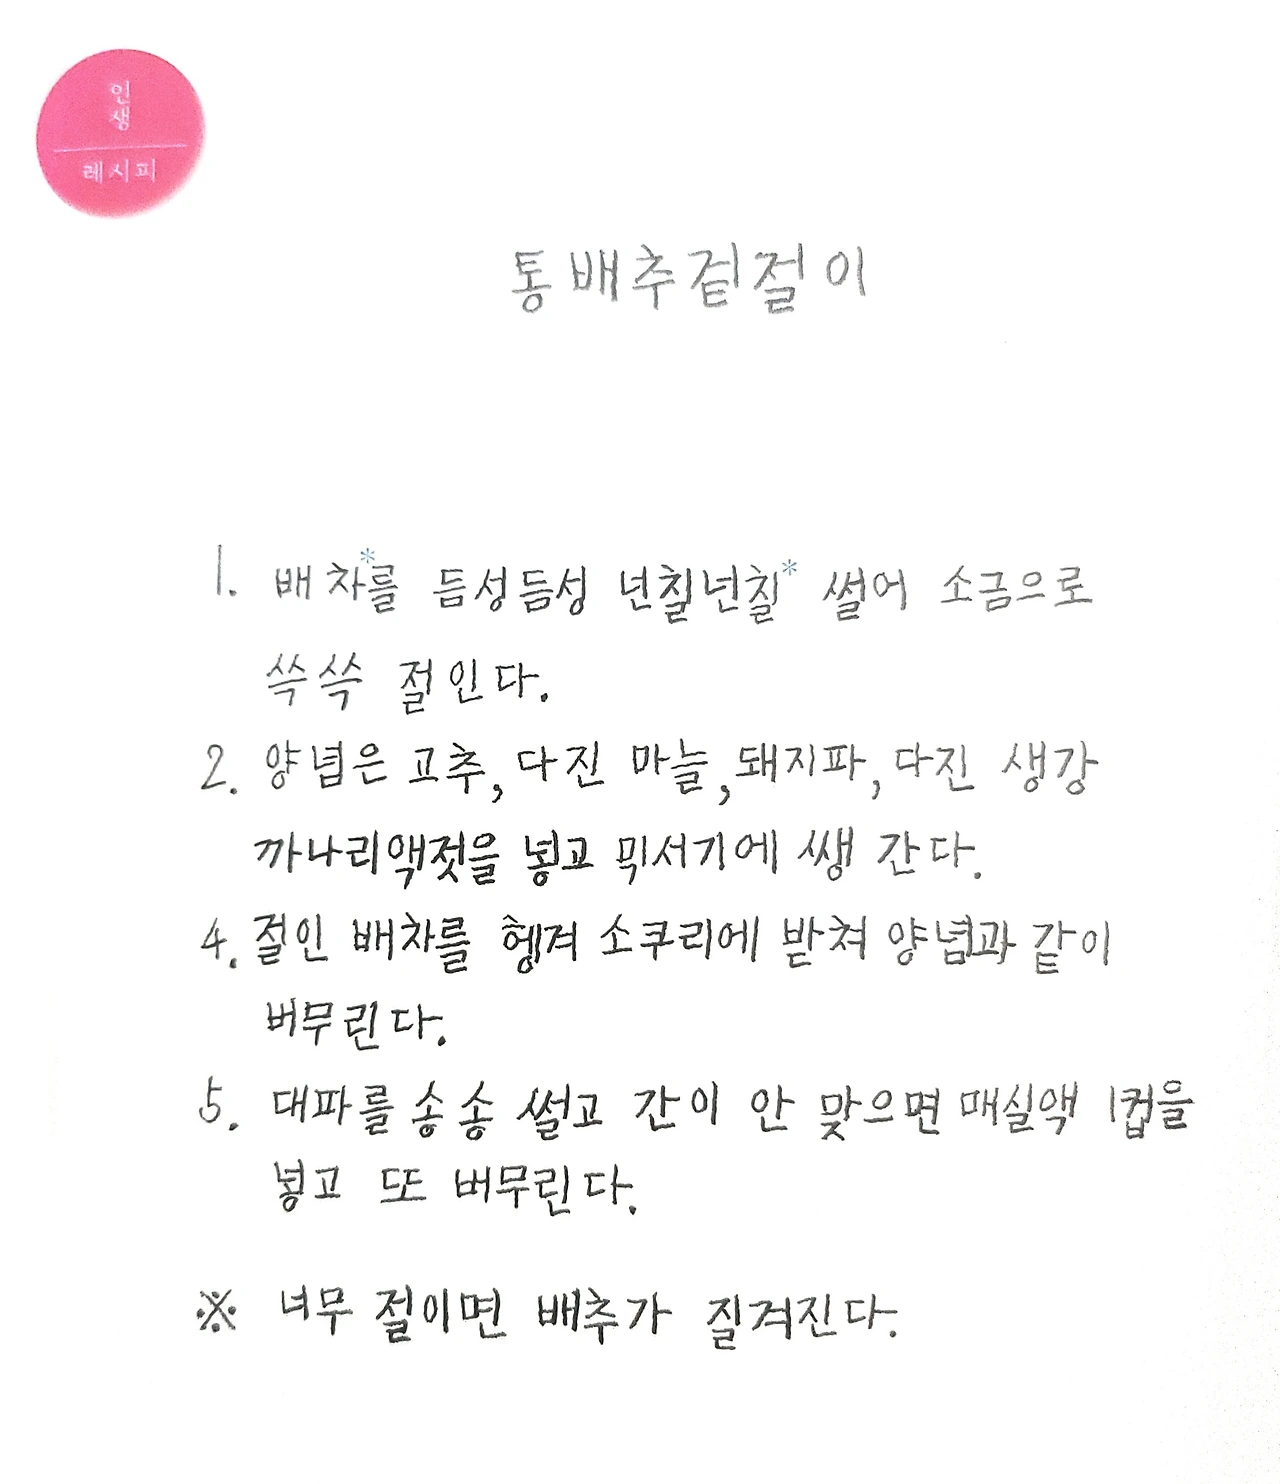 인생
레시피
통배추겉절이
1. 배차*를 듬성듬성 넌칠넌칠* 썰어 소금으로
쓱쓱 절인다.
2. 양념은 고추, 다진 마늘, 돼지파, 다진 생강
까나리액젓을 넣고 믹서기에 쌩 간다.
4. 절인 배차를 헹겨 소쿠리에 받쳐 양념과 같이
버무린다.
5. 대파를 송송 썰고 간이 안 맞으면 매실액 1컵을
넣고 또 버무린다.
※ 너무 절이면 배추가 질겨진다.